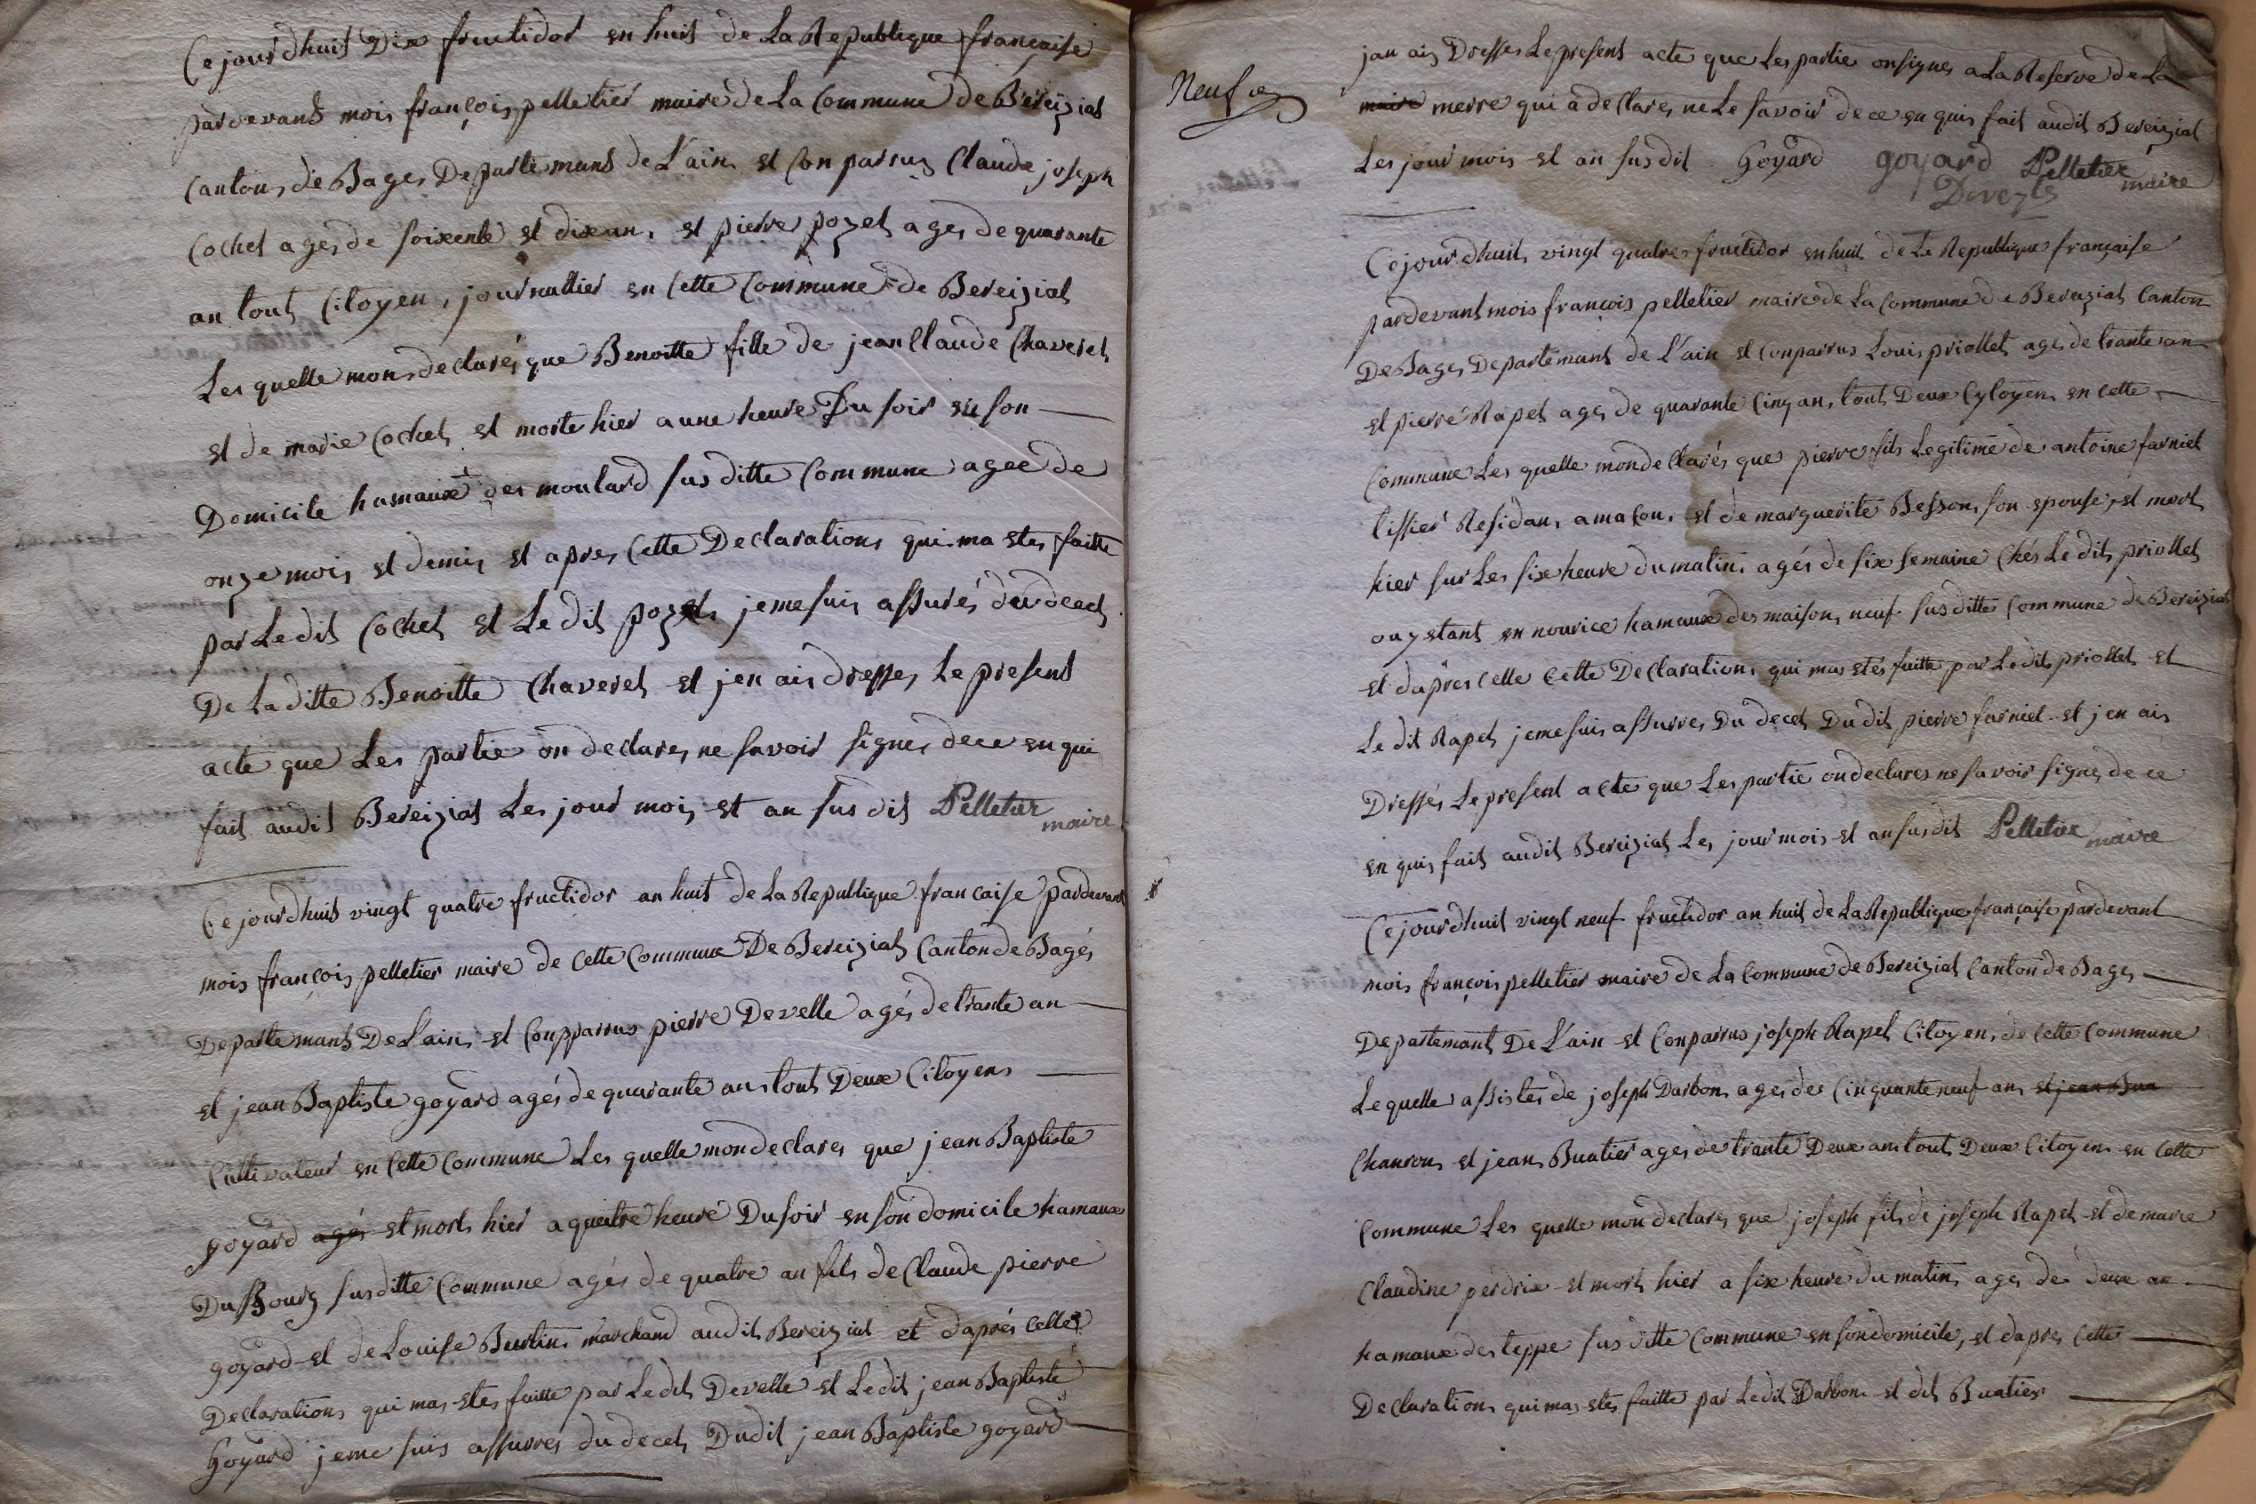 Cejourd'huit Dix fructidor en huit de La Republique françaisse
pardevant mois françois pelletier maire de La Commune de Bereiziat
Canton de Bages Departemant de L'ain et Conparrus Claude joseph
Cochet ages de soixente et dixeun et pierre pozet ages de quarante
an tout Citoyen journallier en Cette Commune de Bereiziat
Les quelle mon declarés que Benoitte fille de jean Claude Chaveret
et de marie Cochet et morte hier a une heure Du soir en son
Domicile hamaux des moulard sus ditte Commune agee de
onze mois et demis et apres Cette Declarations qui ma etes faitte
par Le dit Cochet et Le dit pozet je me suis assurés du decet
De La ditte Benoitte Chaveret et jen ais dresses Le present
acte que Les partie on declares ne savoir signes de ce en qui
fait audit Bereiziat Les jour mois et an sus dit Pelletier maire
Cejourd'huit vingt quatre fructidor an huit de La Republique francaise pardevant
mois françois pelletier maire de Cette Commune De Bereiziat Canton de Bagés
Departemant De L'ain et Conpparrus pierre Develle agés de trante an
et jean Baptiste goyard agés de quarante an tout Deux Citoyens
Cultivateur en Cette Commune Les quelle mon declares que jean Baptiste
goyard agés et mort hier a queitre heure Du soir en son domicile hamaux
Du Bourg susditte Commune agés de quatre an fils de Claude pierre
goyard et de Louise Burtin marchand audit Bereiziat et d'aprés Cette
Declarations qui mas etes faitte par Le dit Develle et Le dit jean Baptiste
Goyard je me suis assurres du decet Dudit jean Baptiste goyard
Neuf
jan ais Dresses Le present acte que Les partie on signes a La Reserve de La
maire merre qui a declares ne Le savoir de ce en quis fait audit Bereiziat
Les jour mois et an susdit Goyard goyard Pelletier maire
Cejourd'huit vingt quatre fructidor en huit de La Republique française
pardevant mois françois pelletier maire de La Commune de Bereiziat Canton
De Bages Departemant de L'ain et Conparrus Louis priollet ages de trante an
et pierre Rapet ages de quarante Cinq an tout Deux Cytoyen en Cette
Commune Les quelle mon declarés que pierre fils Legitime de antoine farniet
tissier Residan a macon et de marguerite Besson son epouse et mort
hier sur Les six heure du matin agés de six semaine Chés Le dit priollet
ou y etant en nourice hamaux des maison neuf susditte Commune de Bereiziat
et dapres Celle Cette Declaration qui mas etés faitte par Le dit priollet et
Le dit Rapet je me suis assurres Du decet Du dit pierre farniet et jen ais
Dressés Le present acte que Les partie on declares ne savoir signes de ce
en quis fait audit Bereiziat Les jour mois et an susdit Pelletier maire
Cejourd'huit vingt neuf fructidor an huit de La Republique française pardevant
mois françois pelletier maire de La Commune de Bereiziat Canton de Bages
Departemant De L'ain et Conparrus joseph Rapet Citoyen de Cette Commune
Le quelle assistes de joseph Darbon ages de Cinquante neuf an et jean Bua
Charron et jean Buatier ages de trante Deux an tout Deux Citoyen en Cette
Commune Les quelle mon declares que joseph fils de joseph Rapet et de marie
Claudine perdrix et mort hier a six heure du matin ages de deux an
hamaux des teppe sus ditte Commune en son domicile et dapres Cette
Declarations qui mas etes faitte par Le dit Darbon et dit Buatier